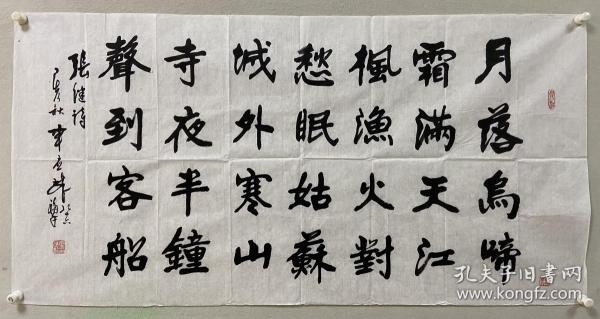 月落烏啼
霜滿天江
楓漁火對
愁眠姑蘇
城外寒山
寺夜半鐘
聲到客船
張継詩
孔夫子旧書网
www.kongfz.com